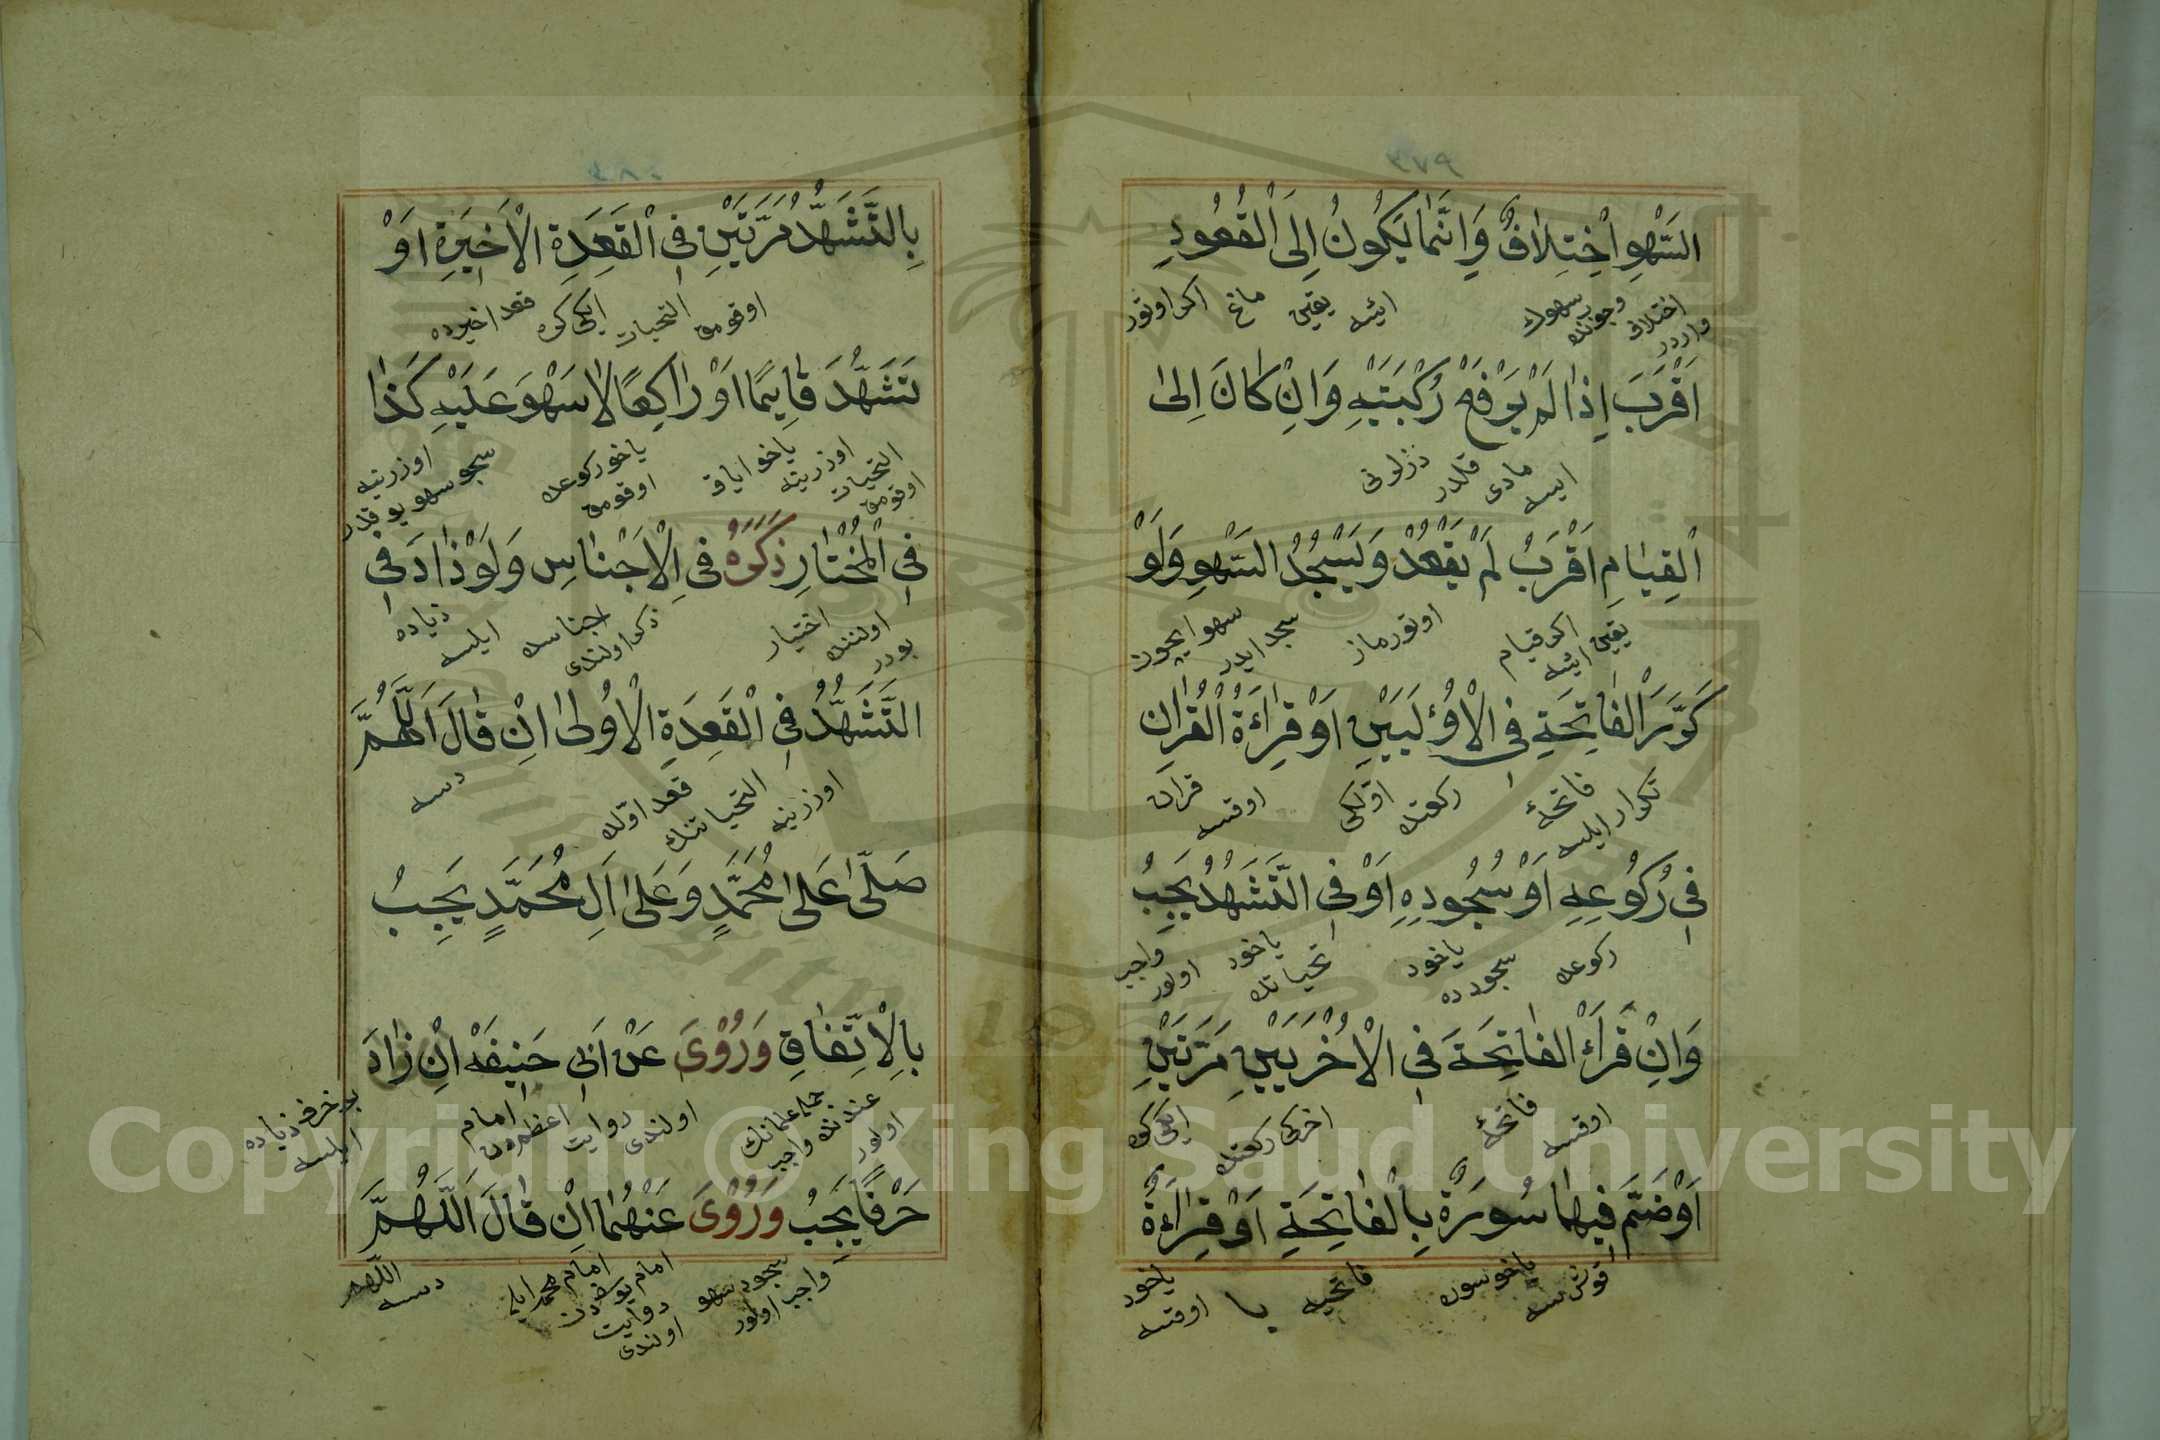 السَّهْوِ اِخْتِلَافٌ وَاِنَّمَا يَكُونُ اِلَى الْقُعُودِ
اختلاف واردر وجوبنده سهوك ايسه يقين اكر اوتور
اَقْرَبَ اِذَا لَمْ يَرْفَعْ رُكْبَتَيْهِ وَاِنْ كَانَ اِلَى
ايسه مادى قلدر
الْقِيَامِ اَقْرَبُ لَمْ يَقْعُدْ وَيَسْجُدُ السَّهْوِ وَلَوْ
يقين ايسه اكر قيام اوتورماز سجدا ايدر سهو ايچون
كَرَّرَ الْفَاتِحَةِ فِى الْاُوْلَيَيْنِ اَوْ قِرَاءَةُ الْقُرْاٰنِ
تكرار ايلسه فاتحۀ ركعتده اوّلكى اوقسه قران
فِى رُكُوعِهِ اَوْ سُجُودِهِ اَوْ فِى التَّشَهُّدُ يَجِبُ
ركوعده سجودده ياخود تحياتده ياخود واجب اولور
وَاِنْ قَرَأَ الْفَاتِحَةَ فِى الْاُخْرَيَيْنِ مَرَّتَيْنِ
اوقسه فاتحۀ اخركى ركعتده ايكى كره
اَوْ ضَمَّ فِيهَا سُورَةٌ بِالْفَاتِحَةِ اَوْ قِرَاءَةٌ
قوشرسه ياخو سوره فاتحيه يا ياخود اوقسه
بِالتَّشَهُّدُ مَرَّتَيْنِ فِى الْقَعِدَةِ الْاَخِيرَةِ اَوْ
اوقومق التحيات ايكى كره قعد اخيرده
تَشَهَّدَ قَايِمًا اَوْ رَاكِعًا لَا سَهْوَ عَلَيْهِ كَذَا
التحيات اوقومق اوزرينه ياخو اياق ياخو ركوعده اوقومق سجو سهو يوقدر اوزرينه
فِى الْمُخْتَارِ ذَكَرَهُ فِى الْاَجْنَاسِ وَلَوْ زَادَ فِى
بودر اولننده اختيار ذكر اولندى اجناسده ايلسه زياده
التَّشَهُّدُ فِى الْقَعِدَةِ الْاُولٰى اِنْ قَالَ اَللّٰهُمَّ
اوزرينه التحياتنك قعد اوّلده دسه
صَلِّ عَلٰى مُحَمَّدٍ وَعَلٰى اَلِ مُحَمَّدٍ يَجِبُ
بِالْاِتِّفَاقِ وَرُوْىَ عَنْ اَبِى حَنِيفَةْ اِنْ زَادَ
اولور واجب عندنده جمله علمانك اولندى روايت امام اعظمدن بر حرف زياده ايلسه
حَرْفًا يَجِبُ وَرُوْىَ عَنْهُمَا اِنْ قَالَ اَللّٰهُمَّ
واجب اولور سجود سهو امام يوسفدن روايت اولندى امام محمد ايله دسه اللّهم
Copyright © King Saud University